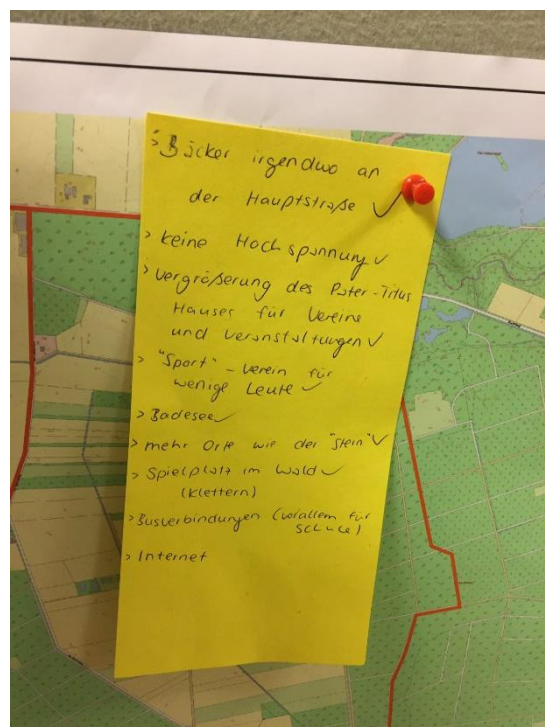 > Bäcker irgendwo an
der Hauptstraße ✓
> keine Hochspannung ✓
> Vergrößerung des Pater-Titus
Hauses für Vereine
und Veranstaltungen ✓
> "Sport" - Verein für
wenige Leute ✓
> Badesee ✓
> mehr Orte wie der "Stein" ✓
> Spielplatz im Wald ✓
(Klettern)
> Busverbindungen (vorallem für
Schule)
> Internet